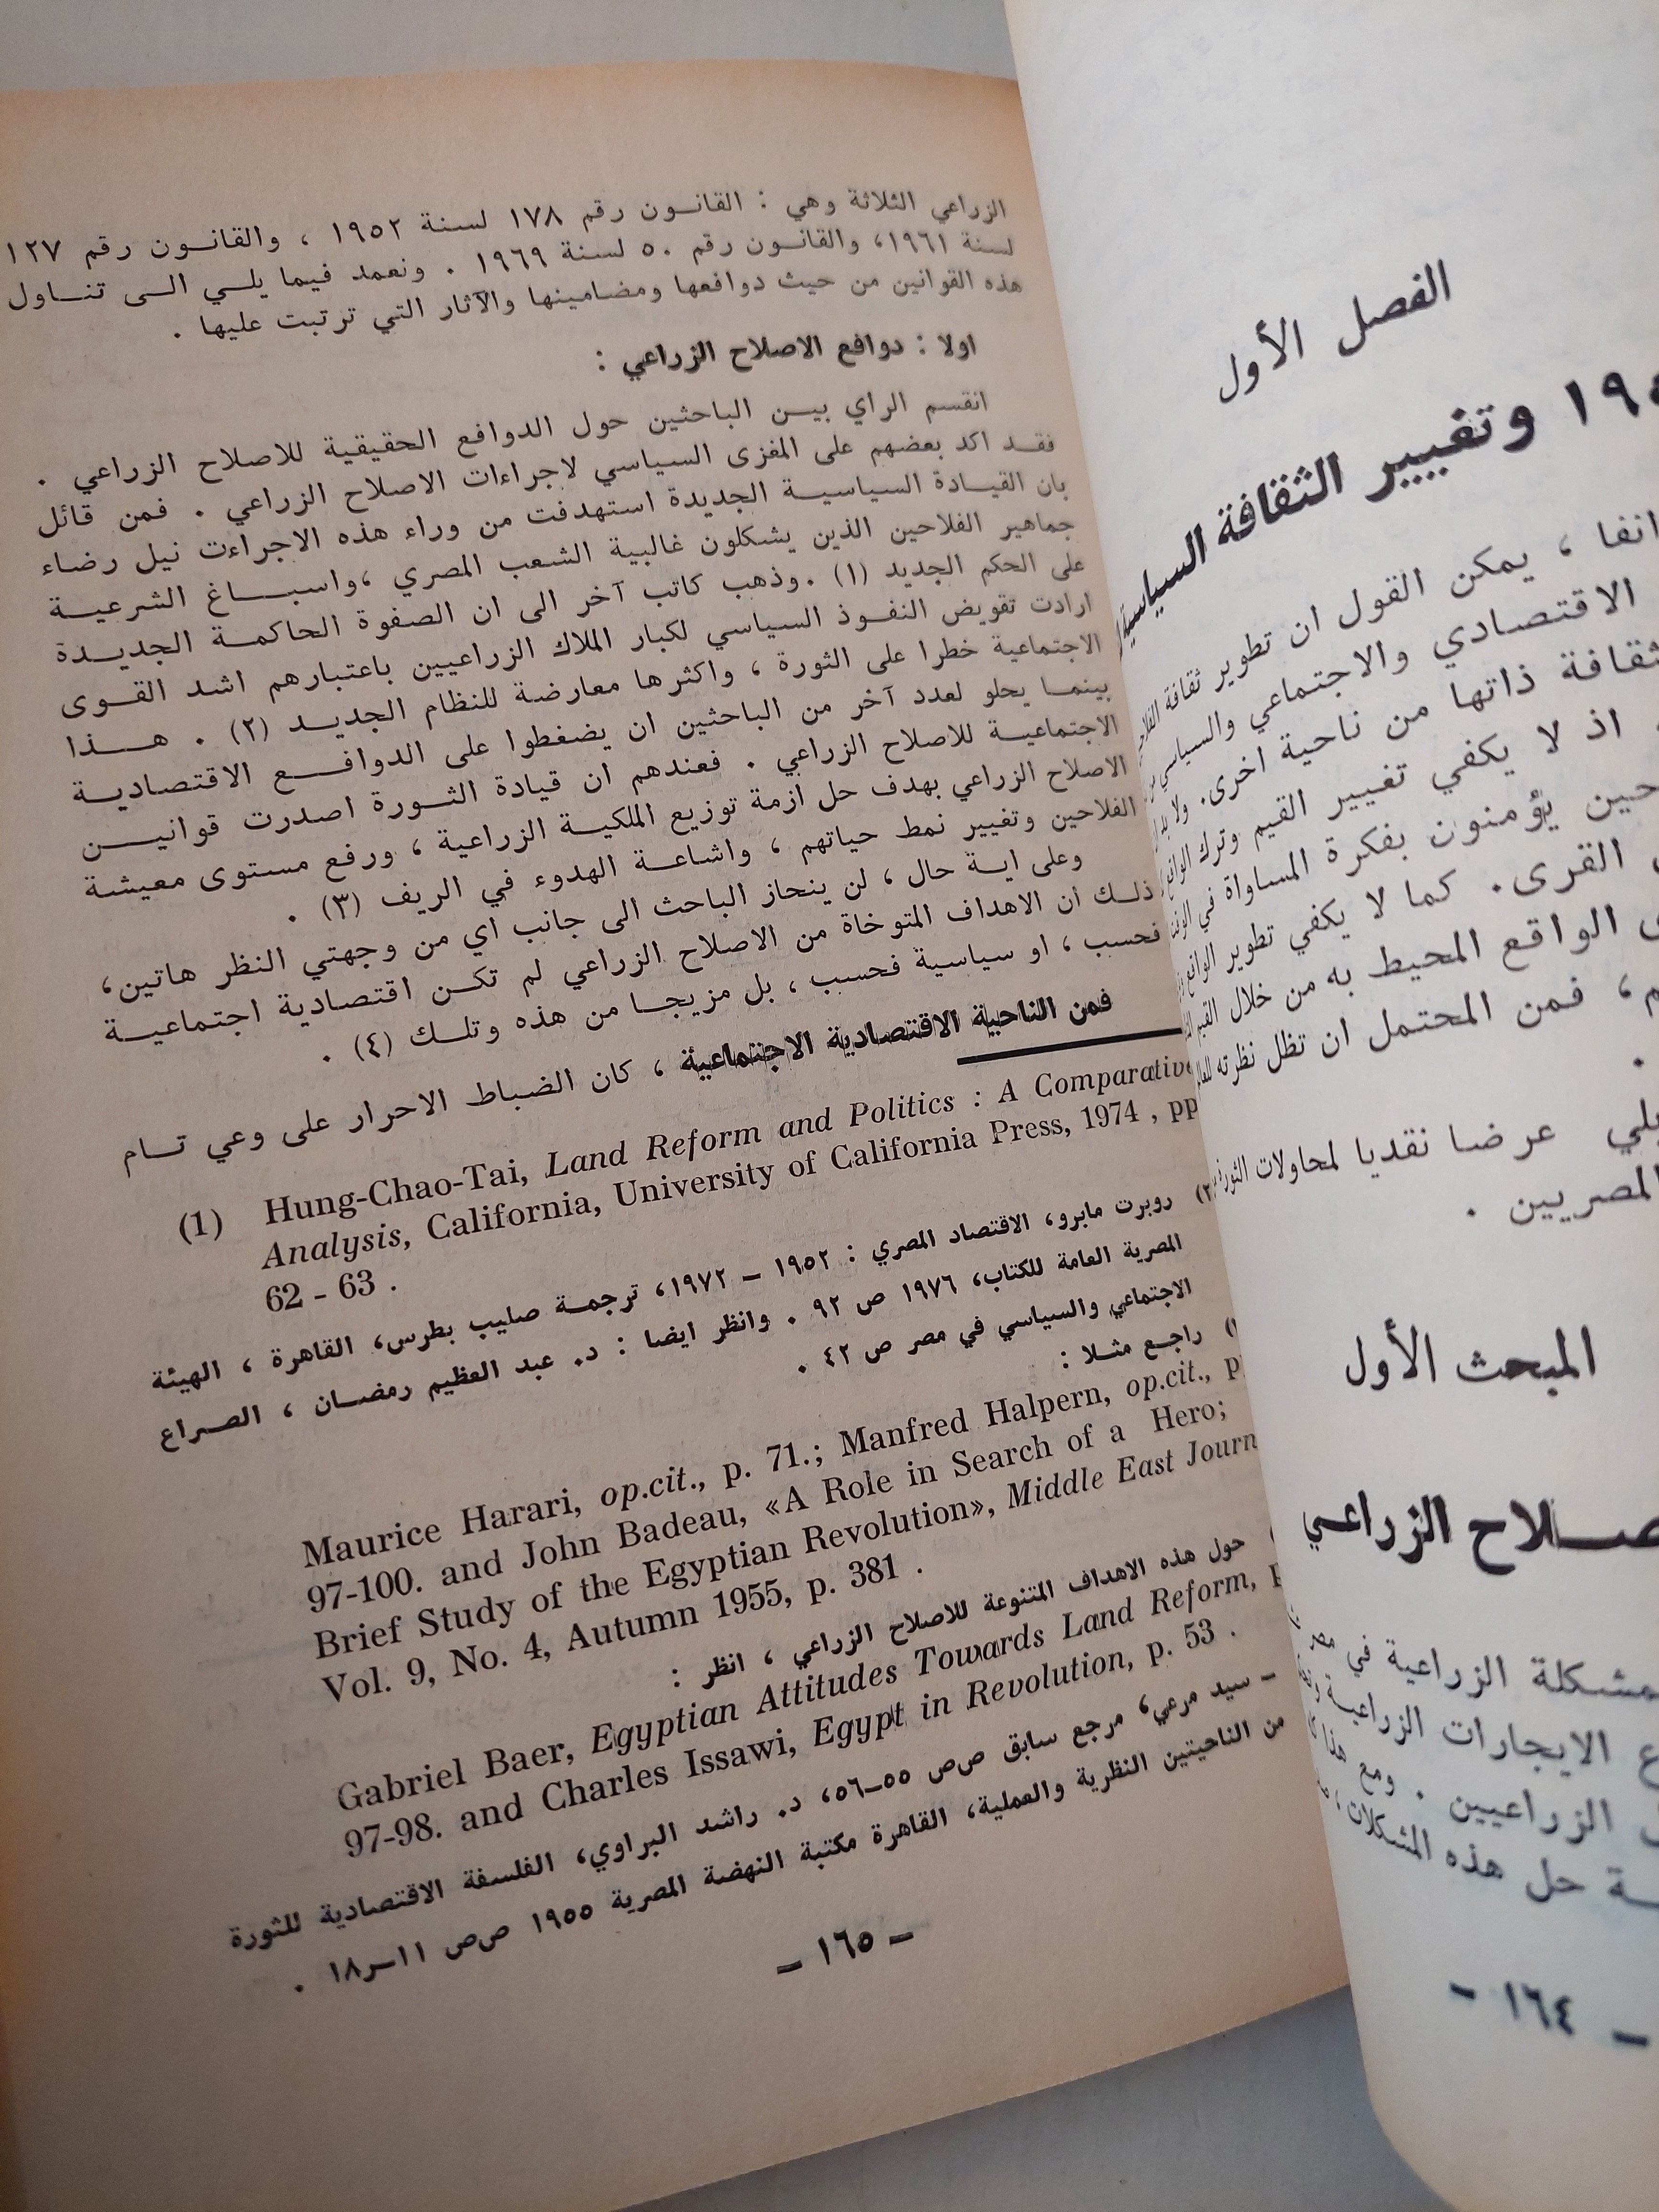 الفصل الأول
وتغيير الثقافة السياسية
انفا ، يمكن القول ان تطوير ثقافة
الاقتصادي والاجتماعي والسياسي
ذاتها من ناحية اخرى. ولا
اذ لا يكفي تغيير القيم وترك
يؤمنون بفكرة المساواة في
القرى. كما لا يكفي تطوير
الواقع المحيط به من خلال القيم
فمن المحتمل ان تظل نظرته
عرضا نقديا لمحاولات
المصريين .
المبحث الأول
الزراعي
الزراعية في
الايجارات الزراعية
الزراعيين . ومع هذا
حل هذه المشكلات،
ـ ١٦٤ ـ
الزراعي الثلاثة وهي : القانون رقم ١٧٨ لسنة ١٩٥٢ ، والقانون رقم ١٢٧
لسنة ١٩٦١، والقانون رقم ٥٠ لسنة ١٩٦٩ . ونعمد فيما يلي الى تناول
هذه القوانين من حيث دوافعها ومضامينها والآثار التي ترتبت عليها .
اولا : دوافع الاصلاح الزراعي :
انقسم الراي بين الباحثين حول الدوافع الحقيقية للاصلاح الزراعي .
فقد اكد بعضهم على المغزى السياسي لاجراءات الاصلاح الزراعي . فمن قائل
بان القيادة السياسية الجديدة استهدفت من وراء هذه الاجراءت نيل رضاء
جماهير الفلاحين الذين يشكلون غالبية الشعب المصري ،واسباغ الشرعية
على الحكم الجديد (١) .وذهب كاتب آخر الى ان الصفوة الحاكمة الجديدة
ارادت تقويض النفوذ السياسي لكبار الملاك الزراعيين باعتبارهم اشد القوى
الاجتماعية خطرا على الثورة ، واكثرها معارضة للنظام الجديد (٢) . هذا
بينما يحلو لعدد آخر من الباحثين ان يضغطوا على الدوافع الاقتصادية
الاجتماعية للاصلاح الزراعي . فعندهم ان قيادة الثورة اصدرت قوانين
الاصلاح الزراعي بهدف حل ازمة توزيع الملكية الزراعية ، ورفع مستوى معيشة
الفلاحين وتغيير نمط حياتهم ، واشاعة الهدوء في الريف (٣) .
وعلى اية حال ، لن ينحاز الباحث الى جانب اي من وجهتي النظر هاتين،
ذلك ان الاهداف المتوخاة من الاصلاح الزراعي لم تكن اقتصادية اجتماعية
فحسب ، او سياسية فحسب ، بل مزيجا من هذه وتلك (٤) .
فمن الناحية الاقتصادية الاجتماعية ، كان الضباط الاحرار على وعي تام
(1) Hung-Chao-Tai, Land Reform and Politics : A Comparative
Analysis, California, University of California Press, 1974 , pp
62 - 63 .
(٢) روبرت مابرو، الاقتصاد المصري : ١٩٥٢ ـ ١٩٧٢، ترجمة صليب بطرس، القاهرة ، الهيئة
المصرية العامة للكتاب، ١٩٧٦ ص ٩٢ . وانظر ايضا : د. عبد العظيم رمضان ، الصراع
الاجتماعي والسياسي في مصر ص ٤٢ .
راجع مثلا :
Maurice Harari, op.cit., p. 71.; Manfred Halpern, op.cit.,
97-100. and John Badeau, «A Role in Search of a Hero;
Brief Study of the Egyptian Revolution», Middle East Journ
Vol. 9, No. 4, Autumn 1955, p. 381 .
حول هذه الاهداف المتنوعة للاصلاح الزراعي ، انظر :
Gabriel Baer, Egyptian Attitudes Towards Land Reform,
97-98. and Charles Issawi, Egypt in Revolution, p. 53 .
ـ سيد مرعي، مرجع سابق صص ٥٥ـ٥٦، د. راشد البراوي، الفلسفة الاقتصادية للثورة
من الناحيتين النظرية والعملية، القاهرة مكتبة النهضة المصرية ١٩٥٥ صص ١١ـر١٨ .
ـ ١٦٥ ـ